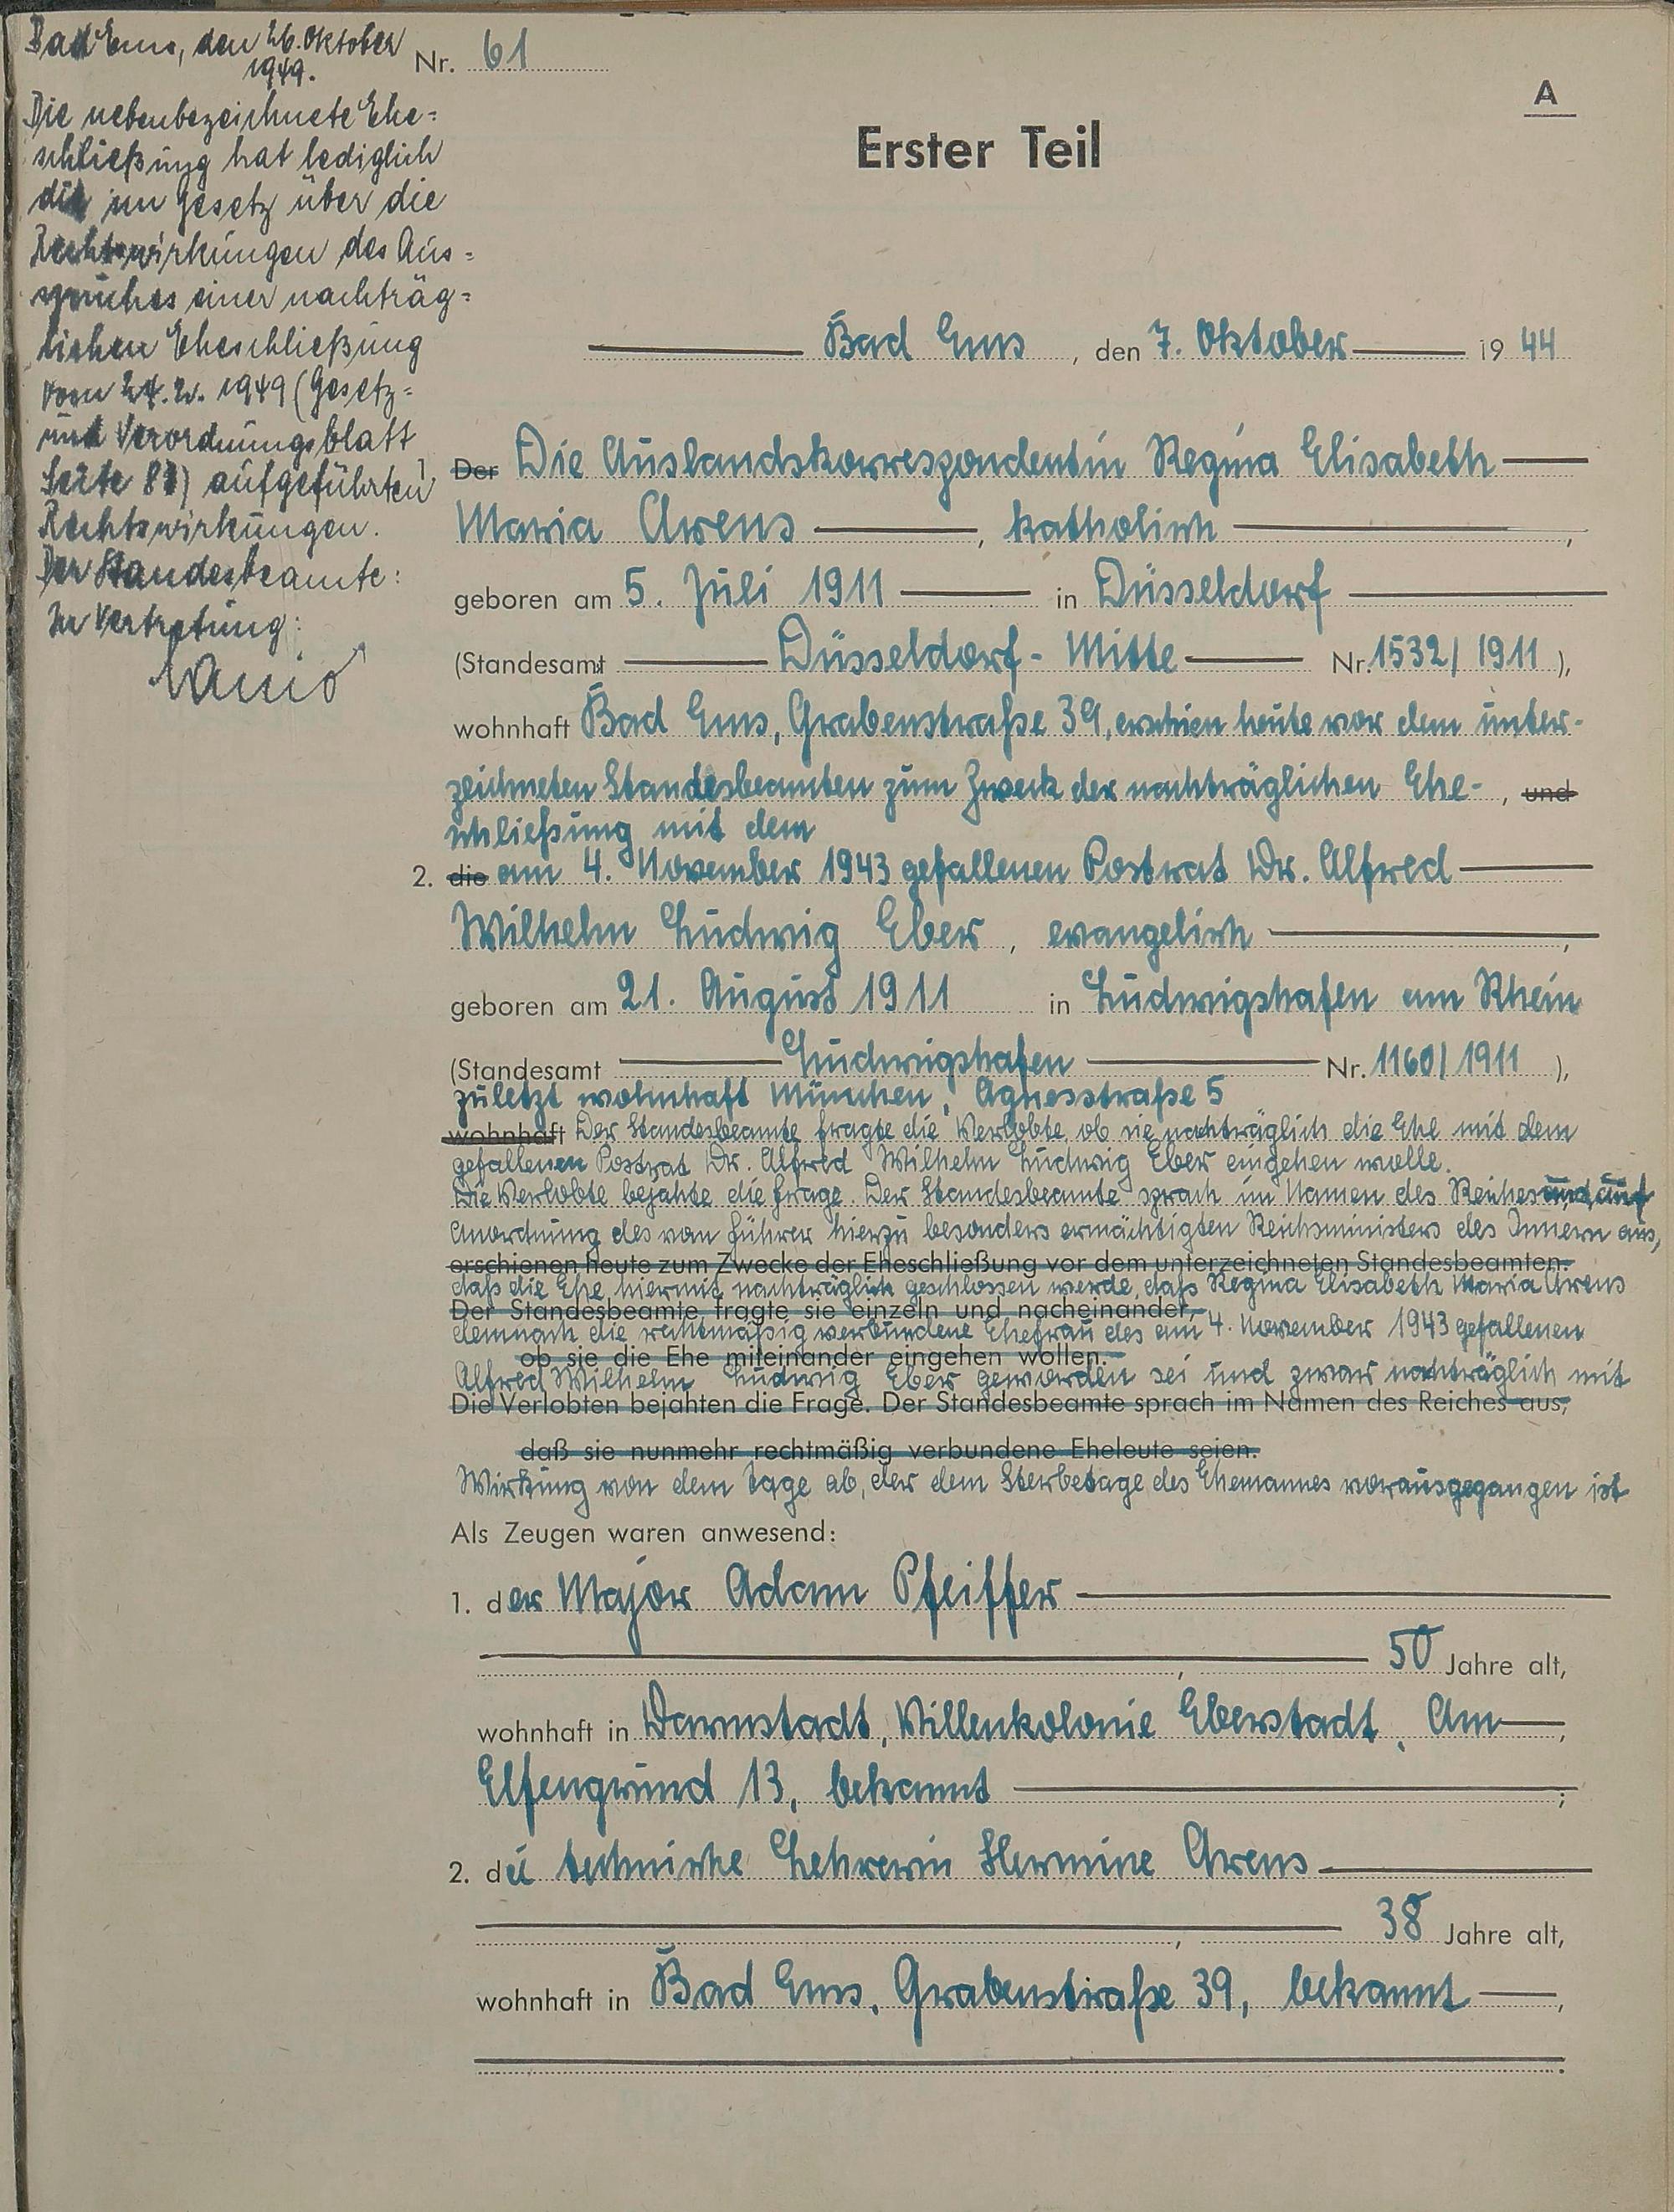 Bad Ems, den 26. Oktober
1949.
Die nebenbezeichnete Ehe=
schließung hat lediglich
die im Gesetz über die
Rechtswirkungen des Aus=
spruches einer nachträg=
lichen Eheschließung
vom 24.2. 1949 (Gesetz=
und Verordnungsblatt
Seite 81) aufgeführten
Rechtswirkungen.
Der Standesbeamte:
In Vertretung:
Nr. 61
A
Erster Teil
Bad Ems, den 7. Oktober 1944
1. Der Die Auslandskorrespondentin Regina Elisabeth
Maria Arens, katholisch,
geboren am 5. Juli 1911 in Düsseldorf
(Standesamt Düsseldorf-Mitte Nr. 1532/1911),
wohnhaft Bad Ems, Grabenstraße 39, erschien heute vor dem unter-
zeichneten Standesbeamten zum Zweck der nachträglichen Ehe-, und
schließung mit dem
2. die am 4. November 1943 gefallenen Postrat Dr. Alfred
Wilhelm Ludwig Eber, evangelisch,
geboren am 21. August 1911 in Ludwigshafen am Rhein
(Standesamt Ludwigshafen Nr. 1160/1911),
zuletzt wohnhaft München, Agnesstraße 5
wohnhaft Der Standesbeamte fragte die Verlobte, ob sie nachträglich die Ehe mit dem
gefallenen Postrat Dr. Alfred Wilhelm Ludwig Eber eingehen wolle.
Die Verlobte bejahte die Frage. Der Standesbeamte sprach im Namen des Reiches und auf
Anordnung des vom Führer hierzu besonders ermächtigten Reichsministers des Innern aus,
erschienen heute zum Zwecke der Eheschließung vor dem unterzeichneten Standesbeamten.
daß die Ehe hiermit nachträglich geschlossen werde, daß Regina Elisabeth Maria Arens
Der Standesbeamte fragte sie einzeln und nacheinander,
demnach die rechtmäßig verbundene Ehefrau des am 4. November 1943 gefallenen
ob sie die Ehe miteinander eingehen wollen.
Alfred Wilhelm Ludwig Eber geworden sei und zwar nachträglich mit
Die Verlobten bejahten die Frage. Der Standesbeamte sprach im Namen des Reiches aus,
daß sie nunmehr rechtmäßig verbundene Eheleute seien.
Wirkung von dem Tage ab, der dem Sterbetage des Ehemannes vorausgegangen ist
Als Zeugen waren anwesend:
1. der Major Adam Pfeiffer
, 50 Jahre alt,
wohnhaft in Darmstadt, Villenkolonie Eberstadt, Am,
Elfengrund 13, bekannt;
2. die technische Lehrerin Hermine Arens
, 38 Jahre alt,
wohnhaft in Bad Ems, Grabenstraße 39, bekannt,
.